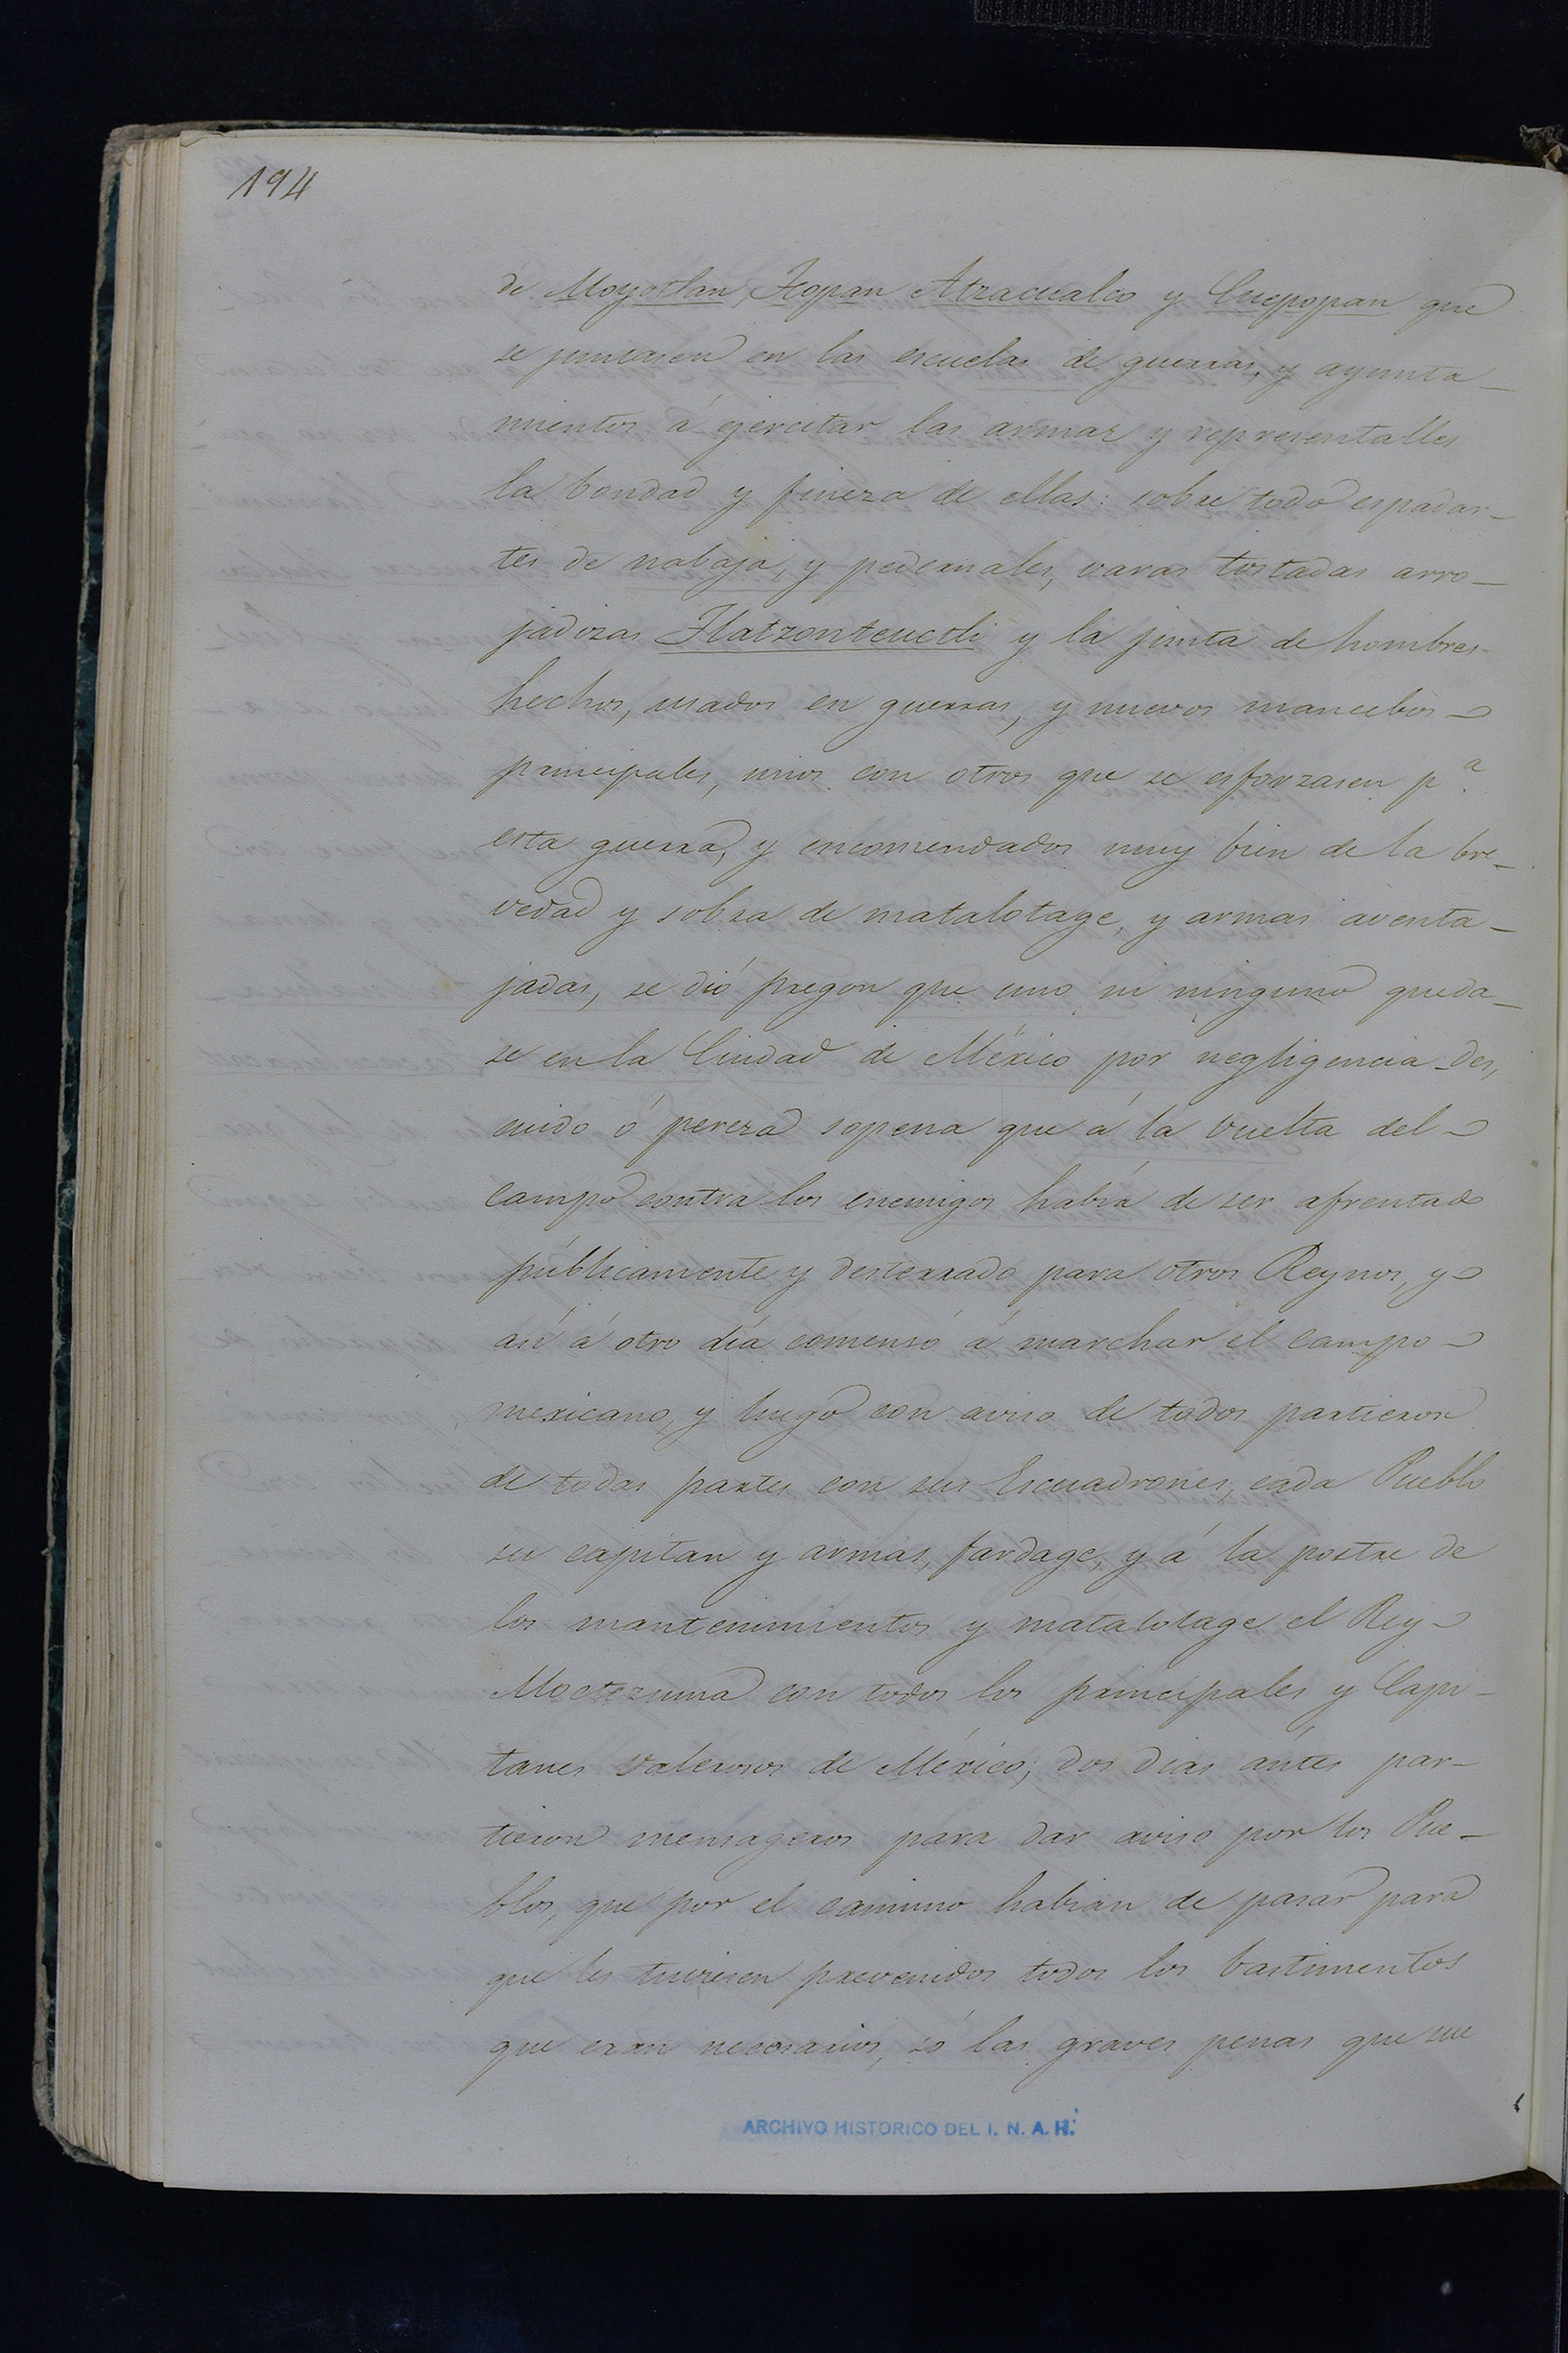 194
de Moyotlan, Teopan Atzacualco y Cuepopan que
se juntasen en las escuelas de guerras, y ayunta-
mientos á ejercitar las armas y representalles
la bondad y fineza de ellas: sobre todo espadar-
tes de nabaja, y pedernales, varas tostadas arro-
jadizas Tlatzonteuctli y la junta de hombres
hechos, usados en guerras, y nuevos mancebos
principales, unos con otros que se esforzasen pª.
esta guerra, y encomendados muy bien de la bre-
vedad y sobra de matalotage, y armas aventa-
jadas, se dió pregon que uno ni ninguno queda-
se en la Ciudad de México por negligencia des,
cuido ó pereza sopena que á la vuelta del
campo contra los enemigos habia de ser afrentado
públicamente y desterrado para otros Reynos, y
así á otro día comensó á marchar el campo
mexicano, y luego con aviso de todos partieron
de todas partes con sus Escuadrones, cada Pueblo
su capitan y armas, fardage, y á la postre de
los mantenimientos y matalotage el Rey
Moctezuma con todos los principales y Capi-
tanes valerosos de México; dos dias ántes par-
tieron mensageros para dar aviso por los Pue-
blos, que por el camino habian de pasar para
que les tuviesen prevenidos todos los bastimentos
que eran necesarios, só las graves penas que sue
ARCHIVO HISTORICO DEL I. N. A. H.